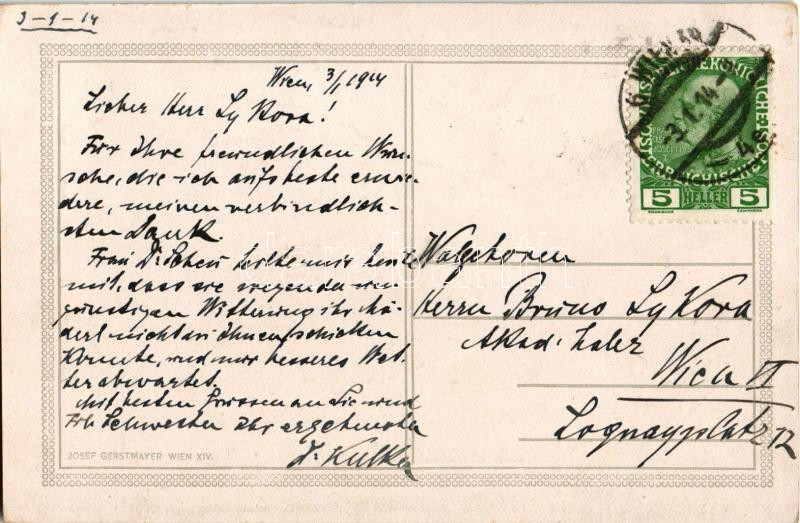 3-1-14
Wien, 3/1 1914
Lieber Herr Sykora!
Für Ihre freundlichen Wün-
sche, die ich aufs beste erwie-
dere, meinen verbindlich-
sten Dank.
Frau Dr. Scheu teilte mir heute
mit, dass sie wegen der un-
günstigen Witterung ihr Mä-
derl nicht zu Ihnen schicken
konnte, und nur besseres Wet-
ter abwartet.
Mit besten Grüssen an Sie und
Frl. Schwester Ihr ergebenster
J. Kulka
JOSEF GERSTMAYER WIEN XIV.
WIEN
3.1.14
5 HELLER 5
Wolgeboren
Herrn Bruno Sykora
Akad. Maler
Wien VI
Loquaiplatz 12